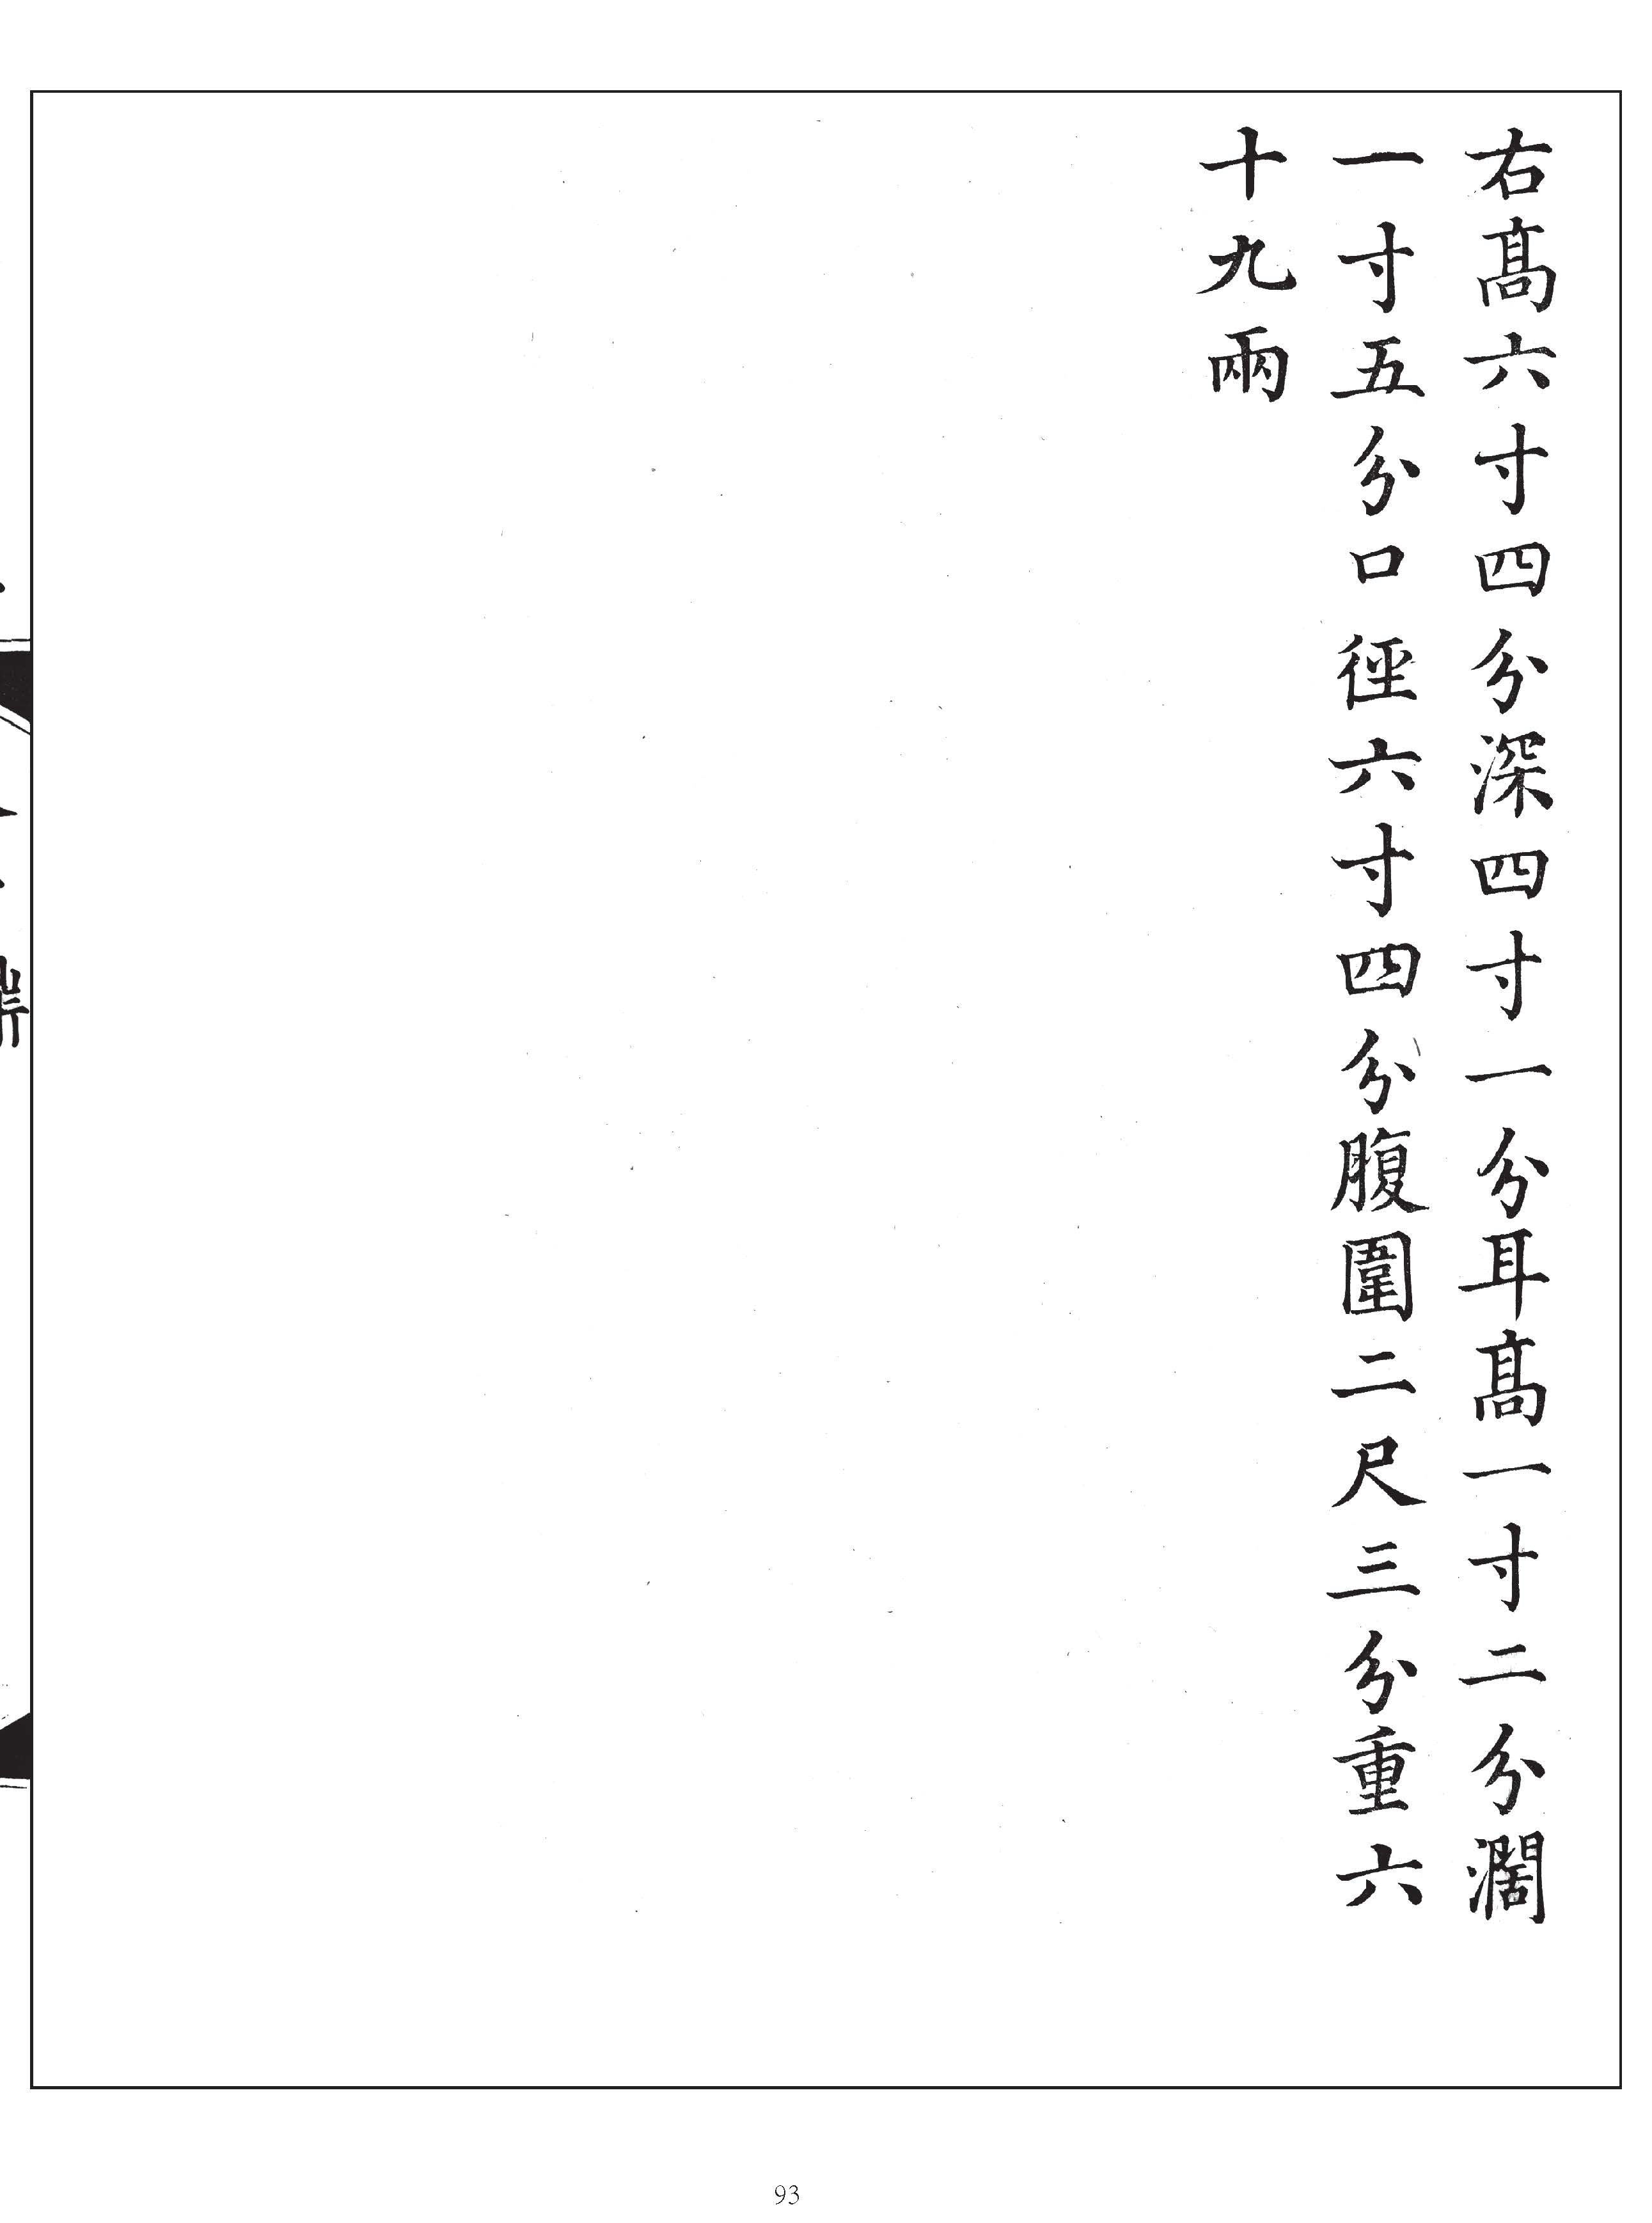 右髙六寸四分深四寸一分耳髙一寸二分濶
一寸五分口徑六寸四分腹圍二尺三分重六
十九兩
93